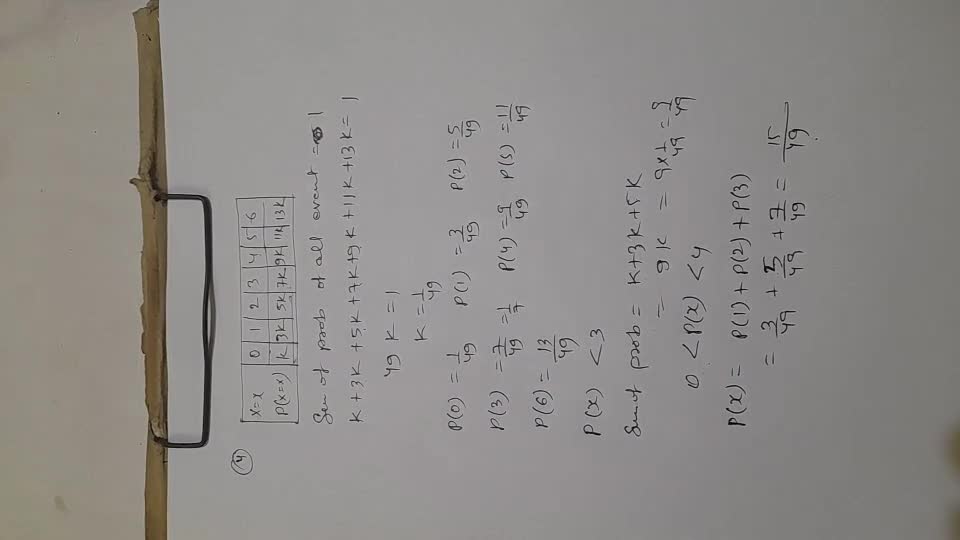 (4)
X=x | 0 | 1 | 2 | 3 | 4 | 5 | 6
P(x=x) | K | 3K | 5K | 7K | 9K | 11K | 13K
Sum of prob of all event = 1
K+3K+5K+7K+9K+11K+13K = 1
49 K = 1
K = 1/49
P(0) = 1/49 P(1) = 3/49 P(2) = 5/49
P(3) = 7/49 = 1/7 P(4) = 9/49 P(5) = 11/49
P(6) = 13/49
P(x) < 3
Sum of prob = K+3K+5K
= 9K = 9x1/49 = 9/49
0 < P(x) < 4
P(x) = P(1) + P(2) + P(3)
= 3/49 + 5/49 + 7/49 = 15/49